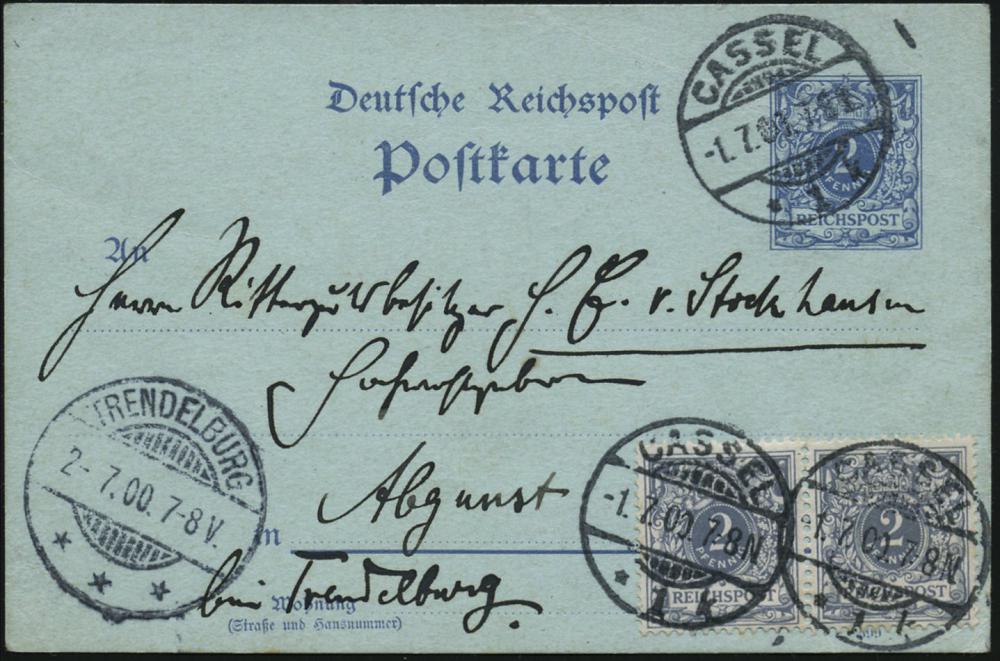 Deutsche Reichspost
Postkarte
CASSEL
-1.7.00.7-8N
* 1 k
2
PFENNIG
REICHSPOST
An
Herrn Rittergutsbesitzer H. E. v. Stockhausen
Hochwohlgeboren
TRENDELBURG
2-7.00.7-8V.
in
Abgunst
bei Trendelburg.
Wohnung
(Straße und Hausnummer)
CASSEL
-1.7.00.7-8N
* 1 k
2
PFENNIG
REICHSPOST
CASSEL
-1.7.00.7-8N
* 1 k
2
PFENNIG
REICHSPOST